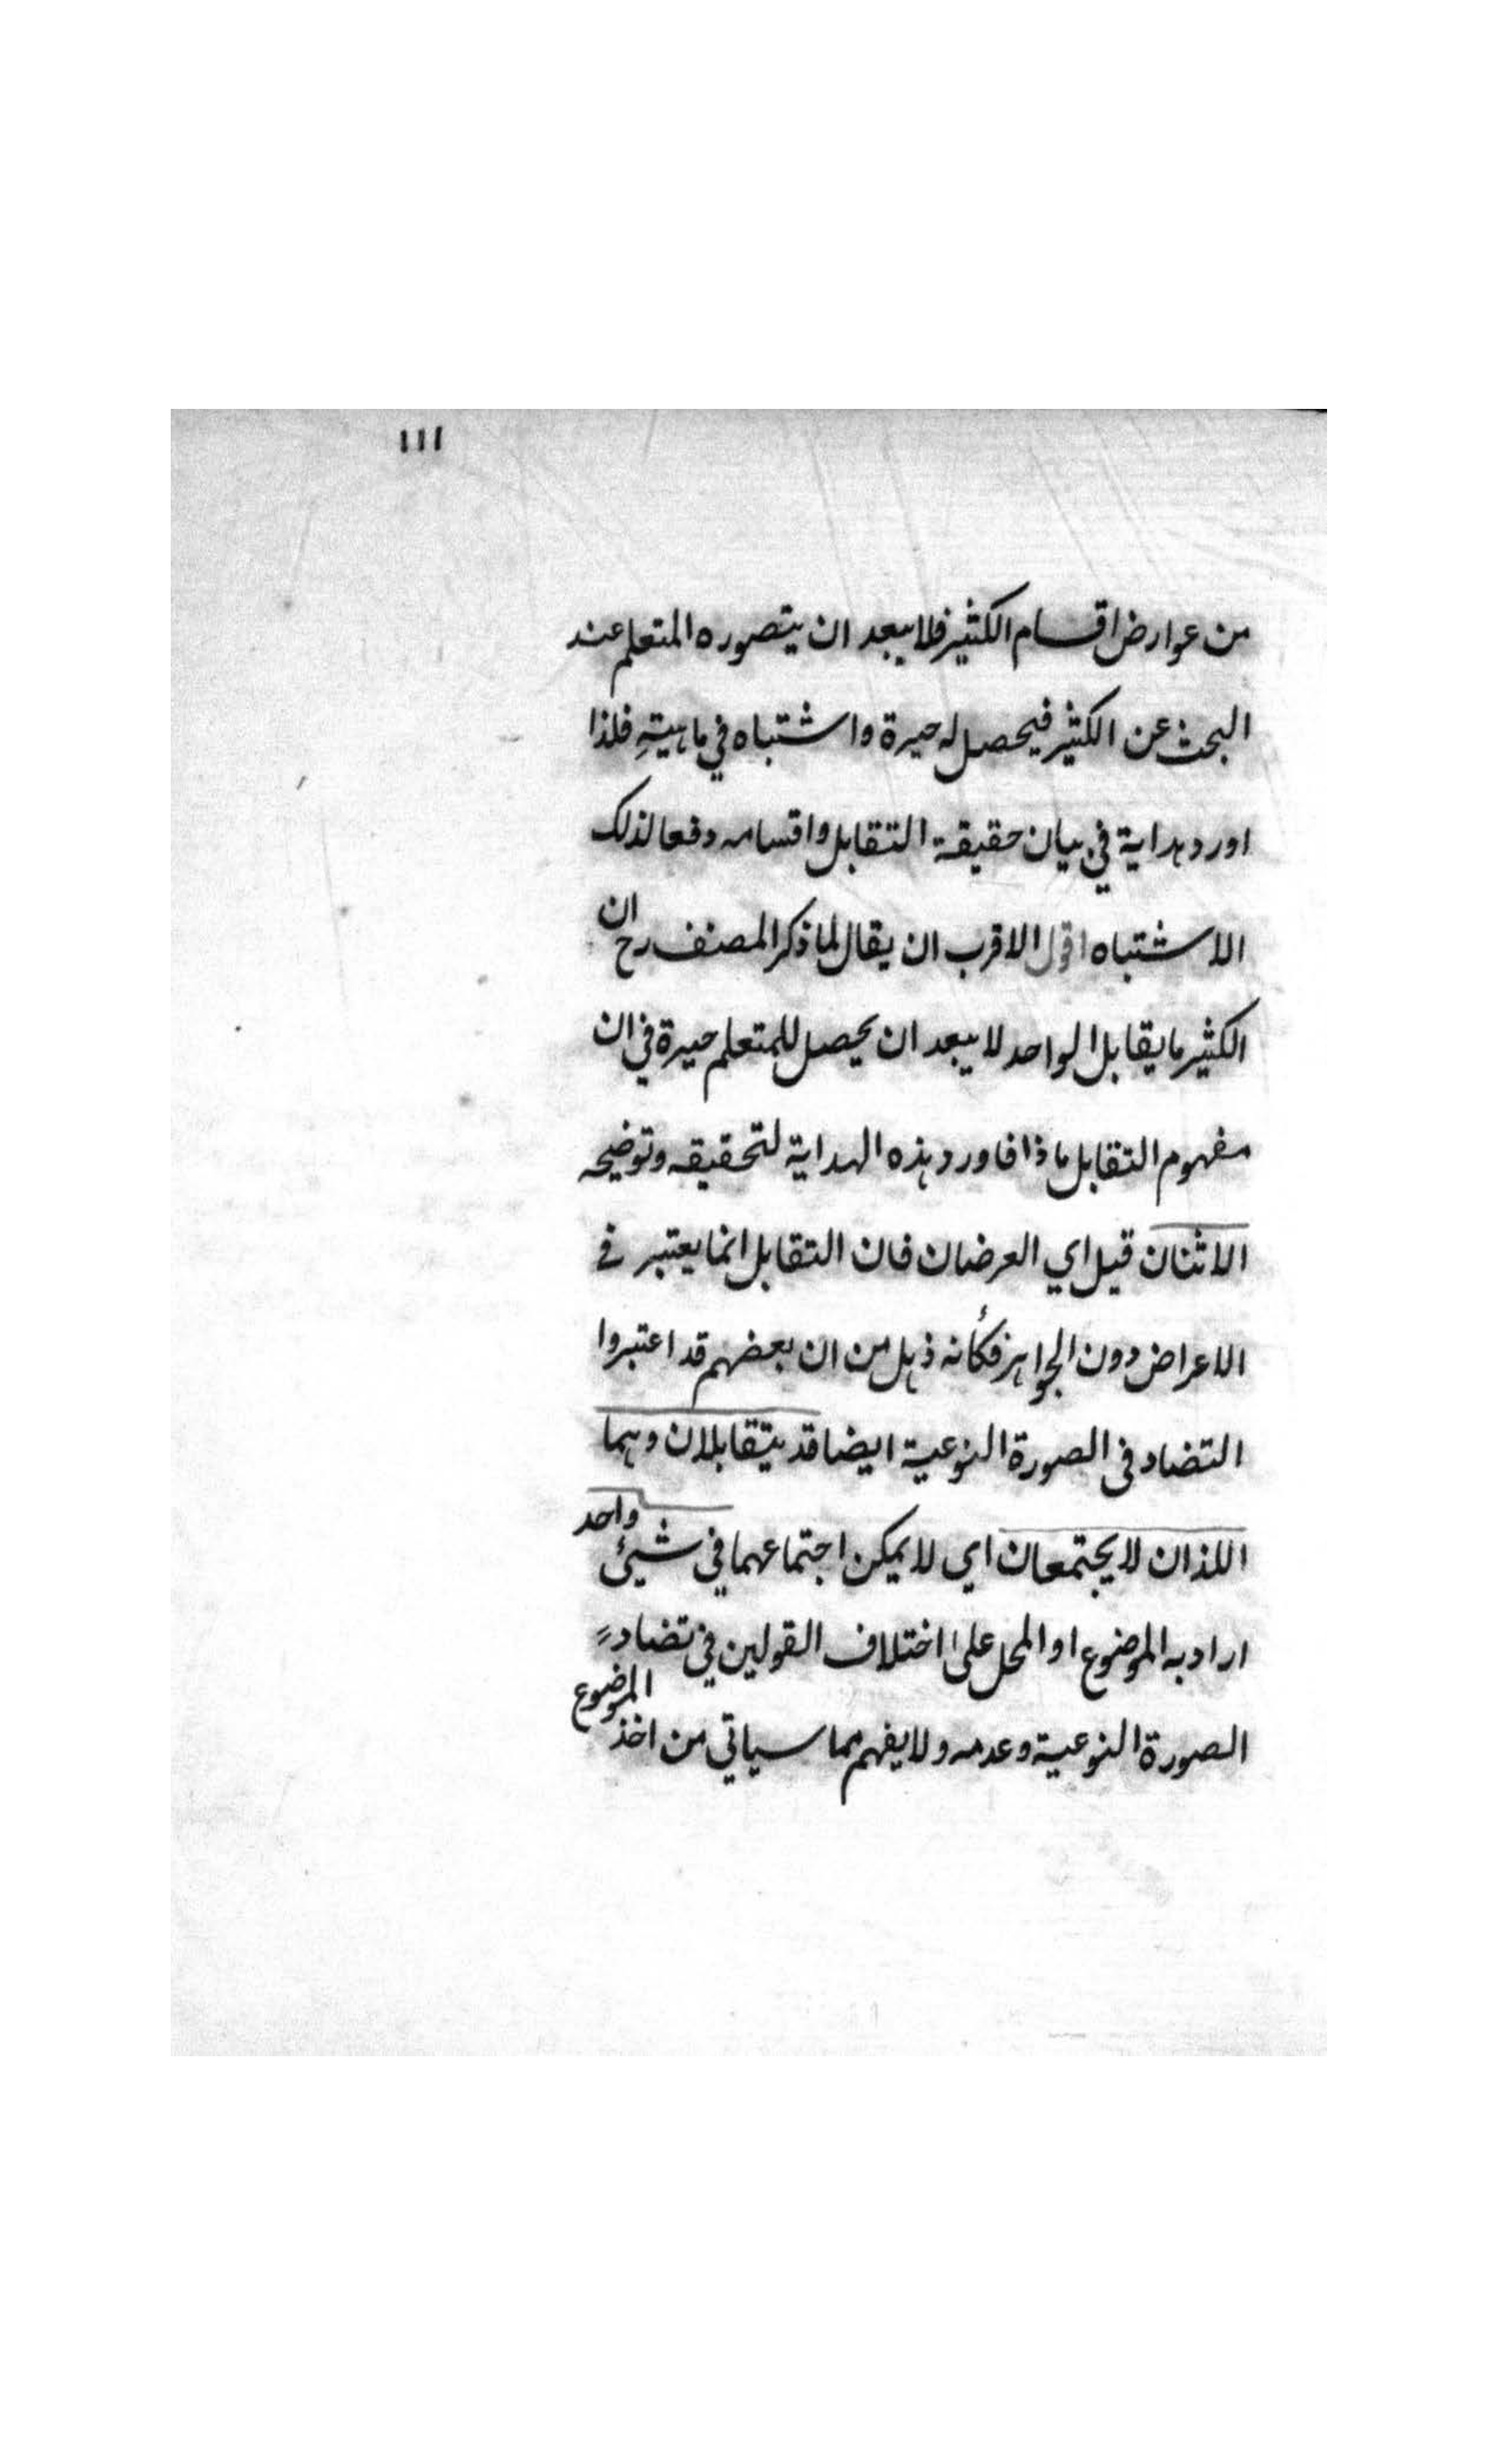 ١١١
من عوارض اقسام الكثير فلا يبعد ان يتصوره المتعلم عند
البحث عن الكثير فيحصل له حيرة واشتباه في ماهيتهِ فلذا
اورد هداية في بيان حقيقة التقابل واقسامه دفعا لذلك
الاشتباه اقول الاقرب ان يقال لما ذكر المصنف رح ان
الكثير ما يقابل الواحد لا يبعد ان يحصل للمتعلم حيرة في ان
مفهوم التقابل ماذا فاورد هذه الهداية لتحقيقه وتوضيحه
الاثنان قيل اي العرضان فان التقابل انما يعتبر في
الاعراض دون الجواهر فكأنه ذهل من ان بعضهم قد اعتبروا
التضاد في الصورة النوعية ايضا قد يتقابلان وهما
اللذان لا يجتمعان اي لا يمكن اجتماعهما في شيئ واحد
اراد به الموضوع او المحل على اختلاف القولين في تضاد
الصورة النوعية وعدمه ولا يفهم مما سياتي من اخذ الموضوع